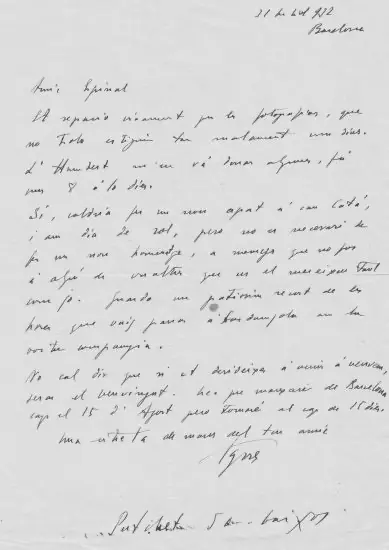 31 de Juliol 932
Barcelona
Amic Espinal
Et regracio vivament per les fotografies, que
no trobo estiguin tan malament com dius.
L' Humbert me'n va donar algunes, fa
uns 8 o 10 dies.
Sí, caldria fer un nou apat a can Catá,
i un dia de sol, però no es necessari
fer un nou homenatge, a menys que no fos
a algú de vosaltres que us el mereixeu tant
com jo. Guardo un record de les
hores que vaig passar a Cerdanyola en la
vostra companyia.
No cal dir que si et decideixes a venir a veure'm,
seras el benvingut. Crec que marxaré de Barcelona
cap el 15 d' Agost pero tornaré al cap de 15 dies.
Una estreta de mans del teu amic